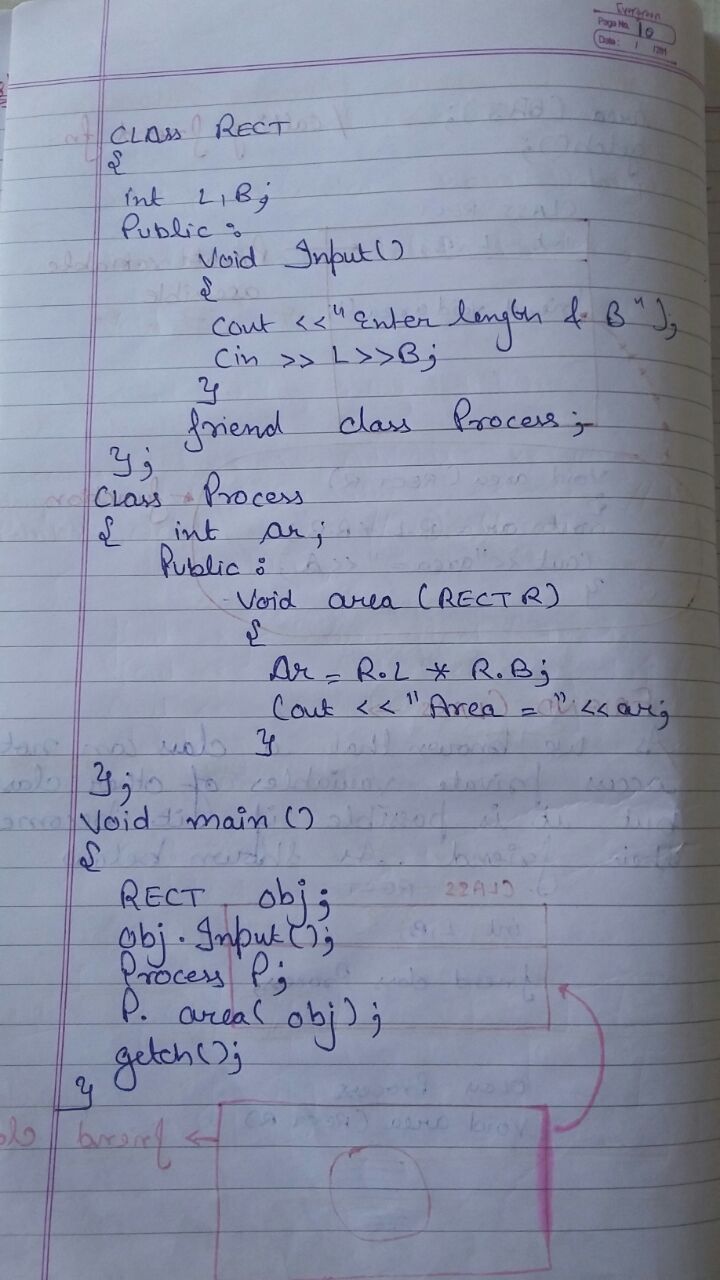 Evergreen
Page No. 10
Date: / /201
CLASS RECT
{
int L, B;
Public :
Void Input()
{
Cout <<"Enter length & B");
Cin >> L>>B;
}
friend class Process;
};
Class Process
{ int ar;
Public :
Void area (RECT R)
{
Ar = R.L * R.B;
Cout <<"Area = "<<ar;
}
};
Void main ()
{
RECT obj;
obj.Input();
Process P;
P. area( obj);
getch();
}